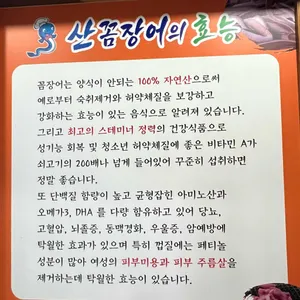 산꼼장어의 효능
꼼장어는 양식이 안되는 100% 자연산으로써
예로부터 숙취제거와 허약체질을 보강하고
강화하는 효능이 있는 음식으로 알려져 있습니다.
그리고 최고의 스테미너 정력의 건강식품으로
성기능 회복 및 청소년 허약체질에 좋은 비타민 A가
쇠고기의 200배나 넘게 들어있어 꾸준히 섭취하면
정말 좋습니다.
또 단백질 함량이 높고 균형잡힌 아미노산과
오메가3, DHA 를 다량 함유하고 있어 당뇨,
고혈압, 뇌졸증, 동맥경화, 우울증, 암예방에
탁월한 효과가 있으며 특히 껍질에는 페티놀
성분이 많아 여성의 피부미용과 피부 주름살을
제거하는데 탁월한 효능이 있습니다.